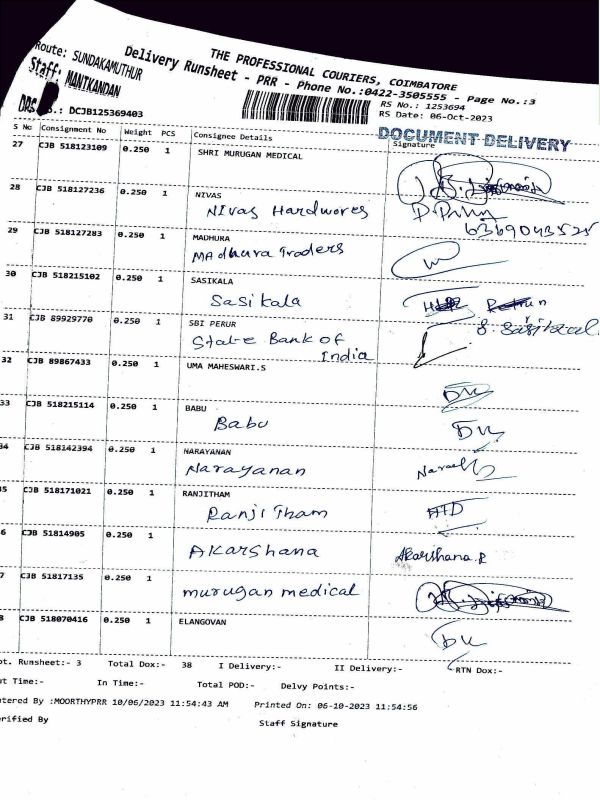 THE PROFESSIONAL COURIERS, COIMBATORE
Delivery Runsheet - PRR - Phone No.:0422-3505555 - Page No.:3
Route: SUNDAKAMUTHUR
Staff: MANIKANDAN
DRS No.: DCJB125369403
RS No.: 1253694
RS Date: 06-Oct-2023
DOCUMENT DELIVERY
S No Consignment No Weight PCS Consignee Details Signature
27 CJB 518123109 0.250 1 SHRI MURUGAN MEDICAL
28 CJB 518127236 0.250 1 NIVAS
Nivas Hardwores
6369043525
29 CJB 518127283 0.250 1 MADHURA
MAdhura Traders
30 CJB 518215102 0.250 1 SASIKALA
Sasikala
31 CJB 89929770 0.250 1 SBI PERUR
State Bank of
India
32 CJB 89867433 0.250 1 UMA MAHESWARI.S
33 CJB 518215114 0.250 1 BABU
Babu
34 CJB 518142394 0.250 1 NARAYANAN
Narayanan
5 CJB 518171021 0.250 1 RANJITHAM
RanjiTham
6 CJB 51814905 0.250 1
AKarshana Akarshana.R
7 CJB 51817135 0.250 1
murugan medical
8 CJB 518070416 0.250 1 ELANGOVAN
ot. Runsheet:- 3 Total Dox:- 38 I Delivery:- II Delivery:- RTN Dox:-
ut Time:- In Time:- Total POD:- Delvy Points:-
tered By :MOORTHYPRR 10/06/2023 11:54:43 AM Printed On: 06-10-2023 11:54:56
erified By Staff Signature